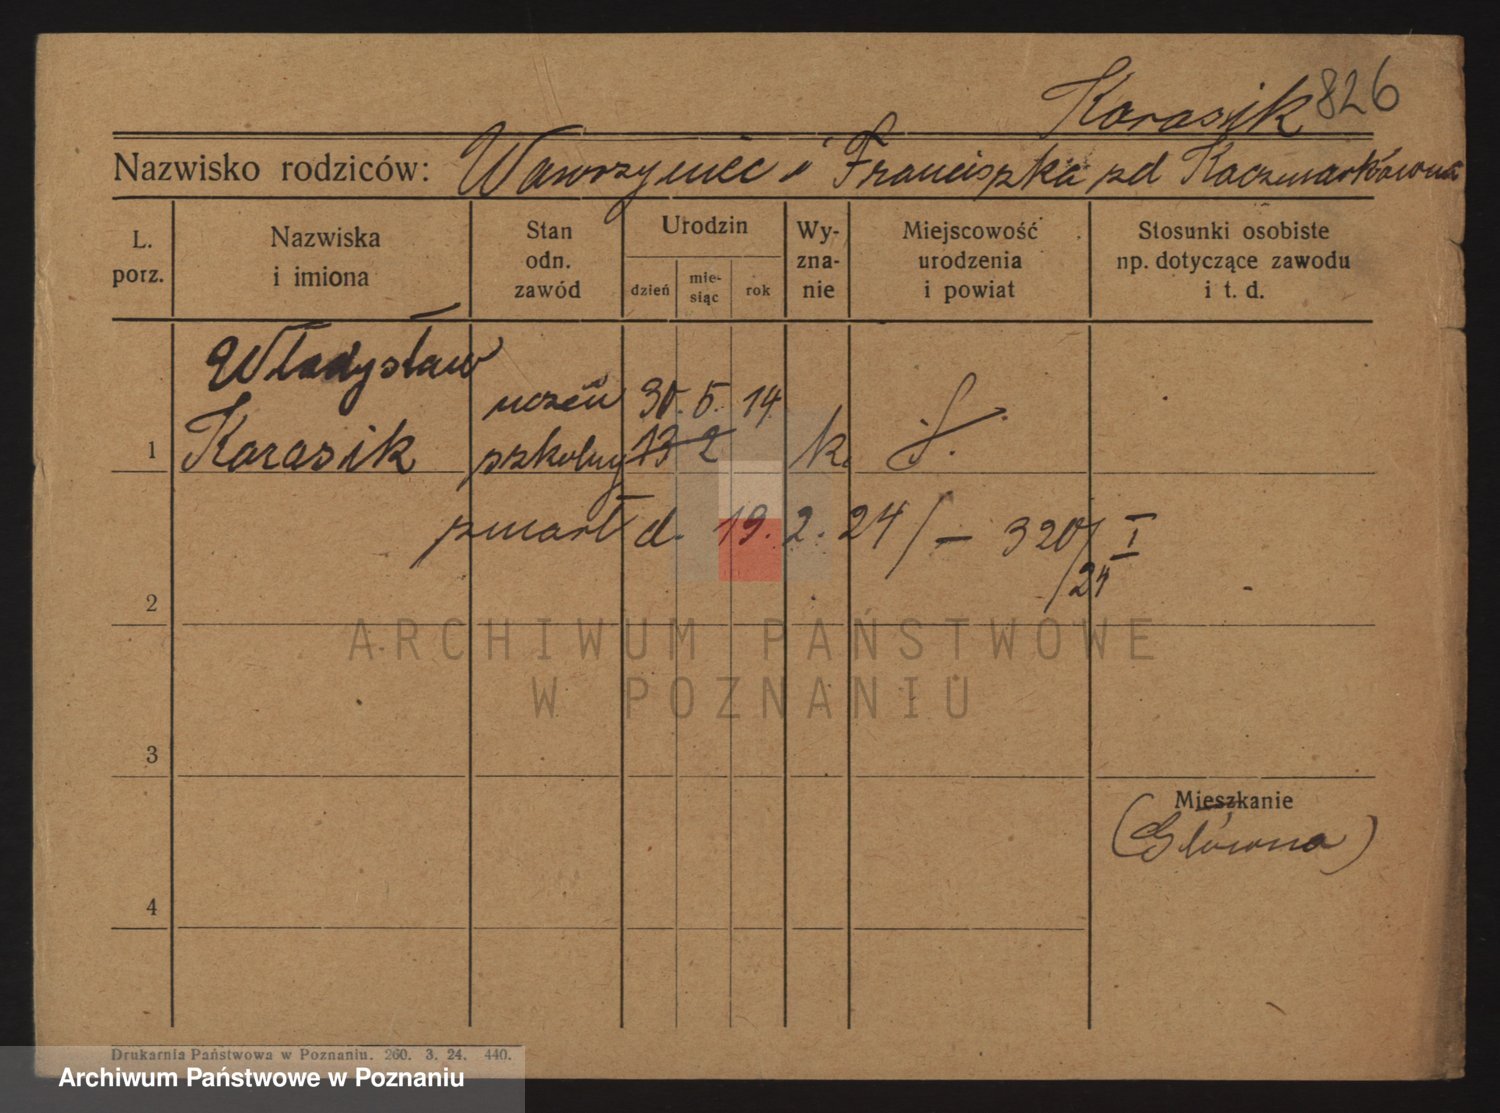 Karasik 826
Nazwisko rodziców: Wawrzyniec i Franciszka zd Kaczmarkówna
L. porz.
Nazwiska i imiona
Stan odn. zawód
Urodzin
dzień
mie-siąc
rok
Wy-zna-nie
Miejscowość urodzenia i powiat
Stosunki osobiste np. dotyczące zawodu i t. d.
Władysław
uczeń 30. 5. 14
1 Karasik szkolny 13 2 k.
zmarł d. 19. 2. 24 / — 320/I
/24
2
ARCHIWUM PAŃSTWOWE
W POZNANIU
3
Mieszkanie
(Główna)
4
Drukarnia Państwowa w Poznaniu. 260. 3. 24. 440.
Archiwum Państwowe w Poznaniu